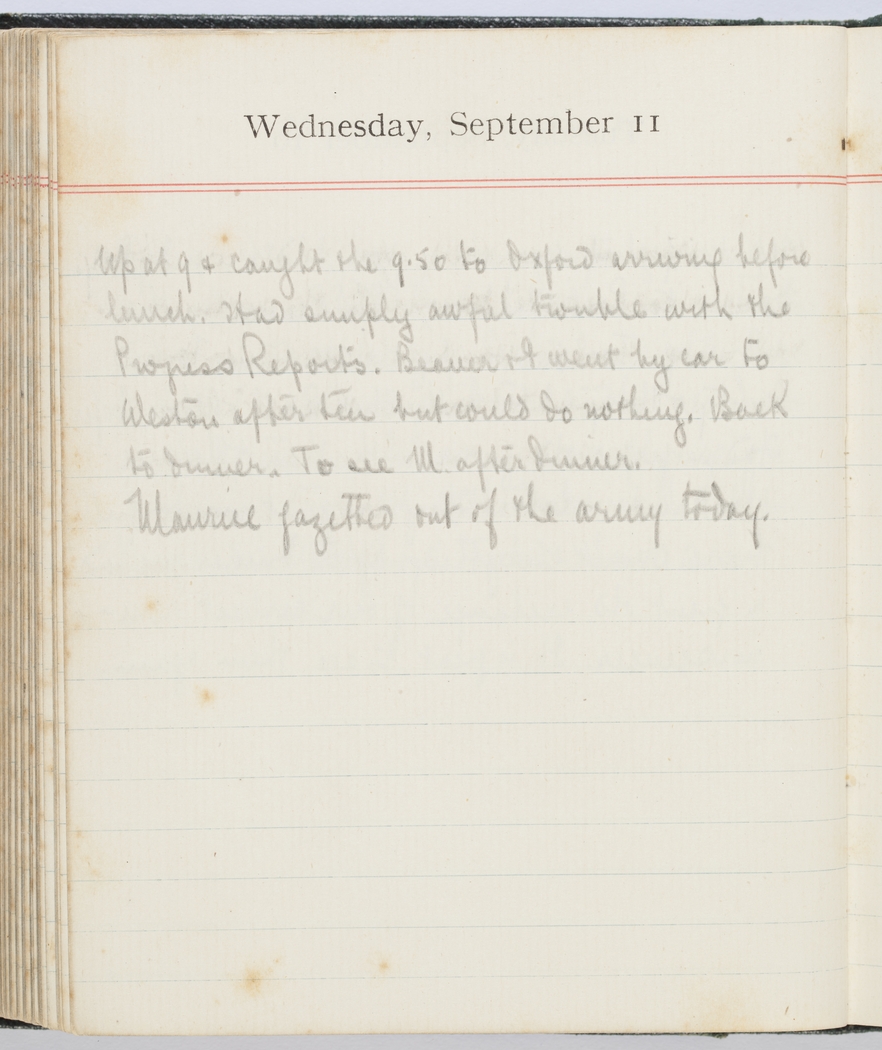 Wednesday, September 11
Up at 9 & caught the 9.50 to Oxford arriving before
lunch. Had simply awful trouble with the
Progress Reports. Beaver & I went by car to
Weston after tea but could do nothing. Back
to dinner. To see M. after dinner.
Maurice gazetted out of the army today.